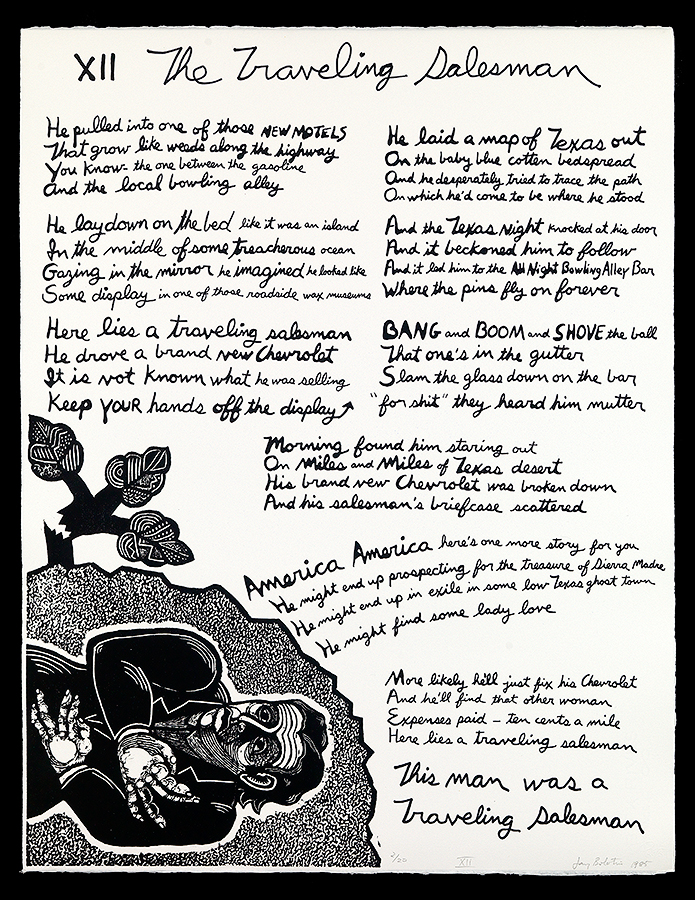 XII The Traveling Salesman
He pulled into one of those NEW MOTELS
That grow like weeds along the highway
You know- the one between the gasoline
and the local bowling alley
He lay down on the bed like it was an island
In the middle of some treacherous ocean
Gazing in the mirror he imagined he looked like
Some display in one of those roadside wax museums
Here lies a traveling salesman
He drove a brand new Chevrolet
It is not known what he was selling
Keep YOUR hands off the display
He laid a map of Texas out
On the baby blue cotten bedspread
And he desperately tried to trace the path
On which he'd come to be where he stood
And the Texas Night knocked at his door
And it beckoned him to follow
And it led him to the All Night Bowling Alley Bar
Where the pins fly on forever
BANG and BOOM and SHOVE the ball
That one's in the gutter
Slam the glass down on the bar
"for shit" they heard him mutter
Morning found him staring out
On Miles and Miles of Texas desert
His brand new Chevrolet was broken down
And his salesman's briefcase scattered
America America here's one more story for you
He might end up prospecting for the treasure of Sierra Madre
He might end up in exile in some low Texas ghost town
He might find some lady love
More likely he'll just fix his Chevrolet
And he'll find that other woman
Expenses paid – ten cents a mile
Here lies a traveling salesman
This man was a
Traveling Salesman
2/20 XII 1985